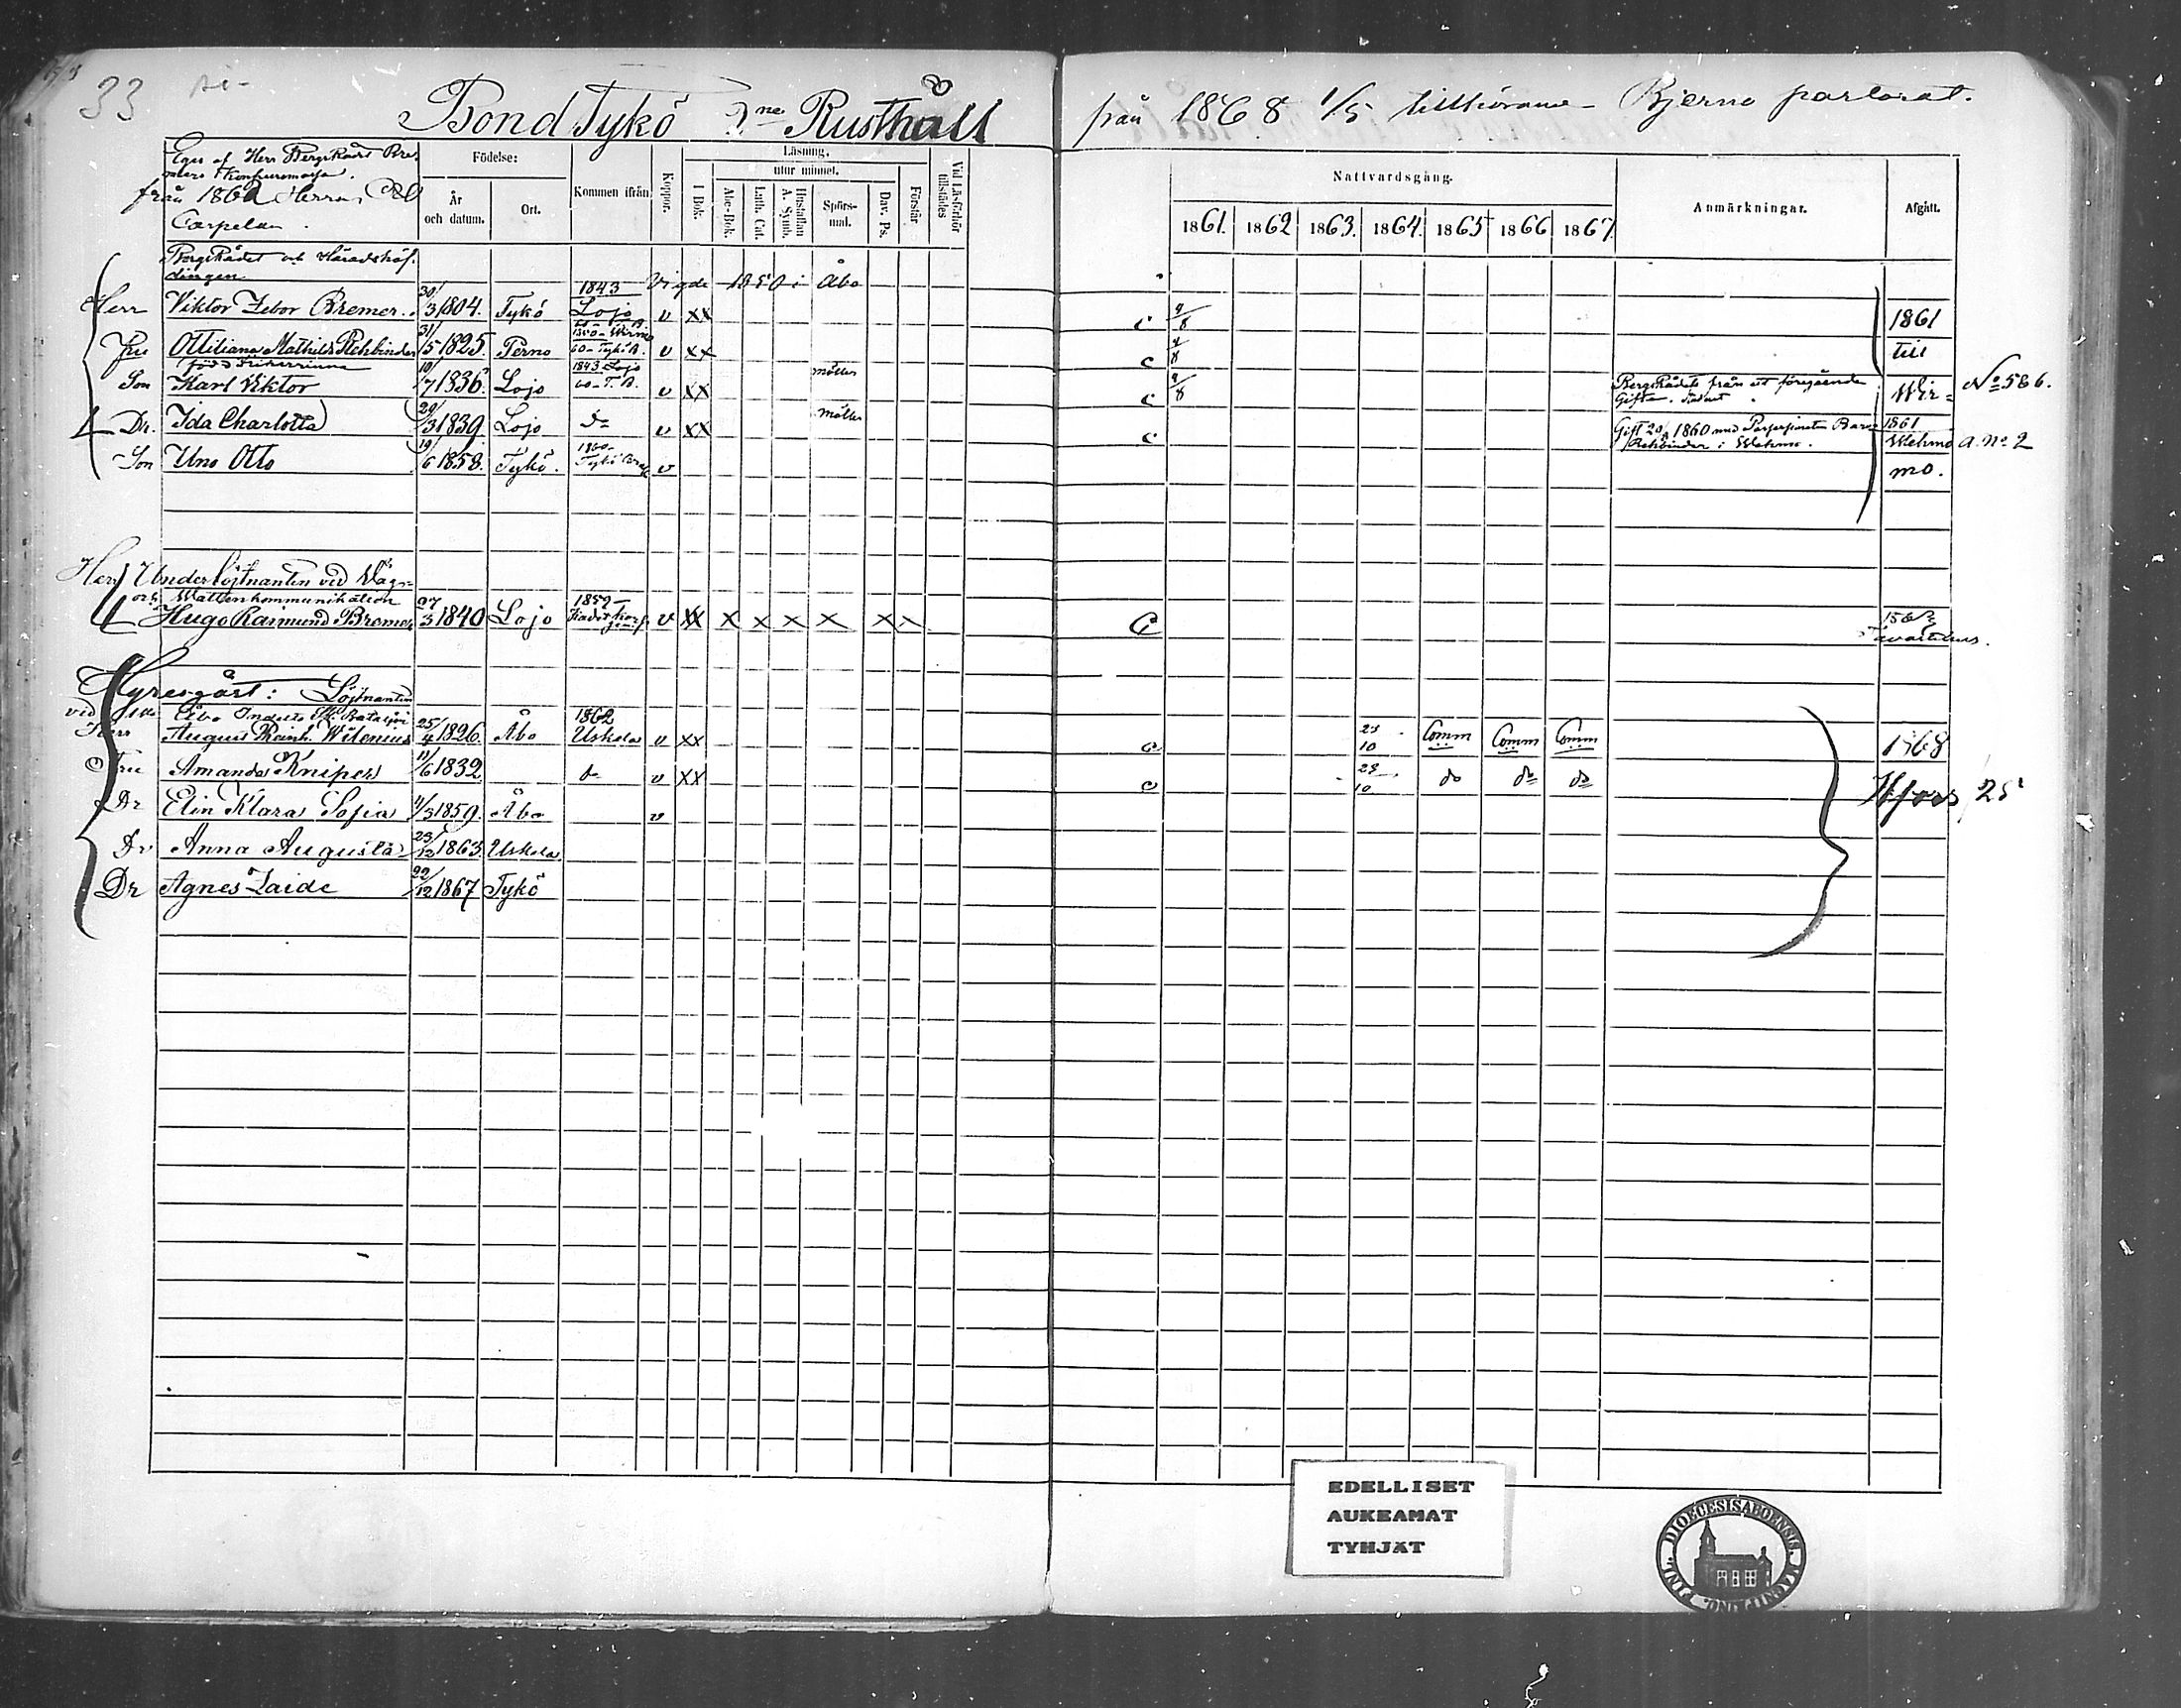 33
Bond Tykö 2ne Rusthåll
från 1868 1/5 tillhörande Bjerno pastorat.
Eges af Herr BergsRådet Bre-
mers Konkursmassa.
från 1862 Herrar
Carpelan.
Födelse:
År och datum.
Ort.
Kommen ifrån
Koppor.
Läsning,
I Bok.
utur minnet.
Abc-Bok.
Luth. Cat.
Hustaflan A. Symb.
Spörs-mal.
Dav. Ps.
Förstår
Vid Läsförhör tillstädes
Nattvardsgång.
1861. 1862 1863. 1864. 1865 1866 1867
Anmärkningar.
Afgått.
BergsRådet och Häradshöf-
dingen
Vigde 1850 i Åbo
Herr Viktor Zebor Bremer. 30/3 1804. Tykö 1843 Lojo v xx c 9/8 1861
Fru Ottiliana Mathilda Rehbinder 31/5 1825. Perno 60 - Tykö B. v xx c 9/8 till
född Friherrinna
Son Karl Viktor 10/7 1836. Lojo 1843 Lojo 60 - T. B. v xx c 9/8 Wir- No 586.
Dr. Ida Charlotta 29/3 1839. Lojo do v xx c Gift 1860 med Baron Rehbinder i Wehmo. 1861 Wehmo a. No 2
Son Uno Otto 19/6 1858. Tykö. 1860 Tykö Bruk v mo.
Herr Underlöjtnanten vid Wäg-
och Wattenkommunikation
Hugo Raimund Bremer 27/3 1840 Lojo 1859 v xx x x x x x x x C Tavastehus.
Hyresgäst: Löjtnanten
vid Åbo Indelta Bataljon
Herr August Reinh. Wilenius 25/4 1826. Åbo 1862 Uskela v xx c 23/10 Comm Comm Comm 1868
Fru Amanda Kniper 11/6 1832 do v xx c 23/10 do do do Hfors 25
Dr Elin Klara Sofia 11/3 1859. Åbo v
Dr Anna Augusta 23/12 1863. Uskela
Dr Agnes Zaide 22/12 1867 Tykö
EDELLISET
AUKEAMAT
TYHJÄT
DIOECESIS ABOENSIS